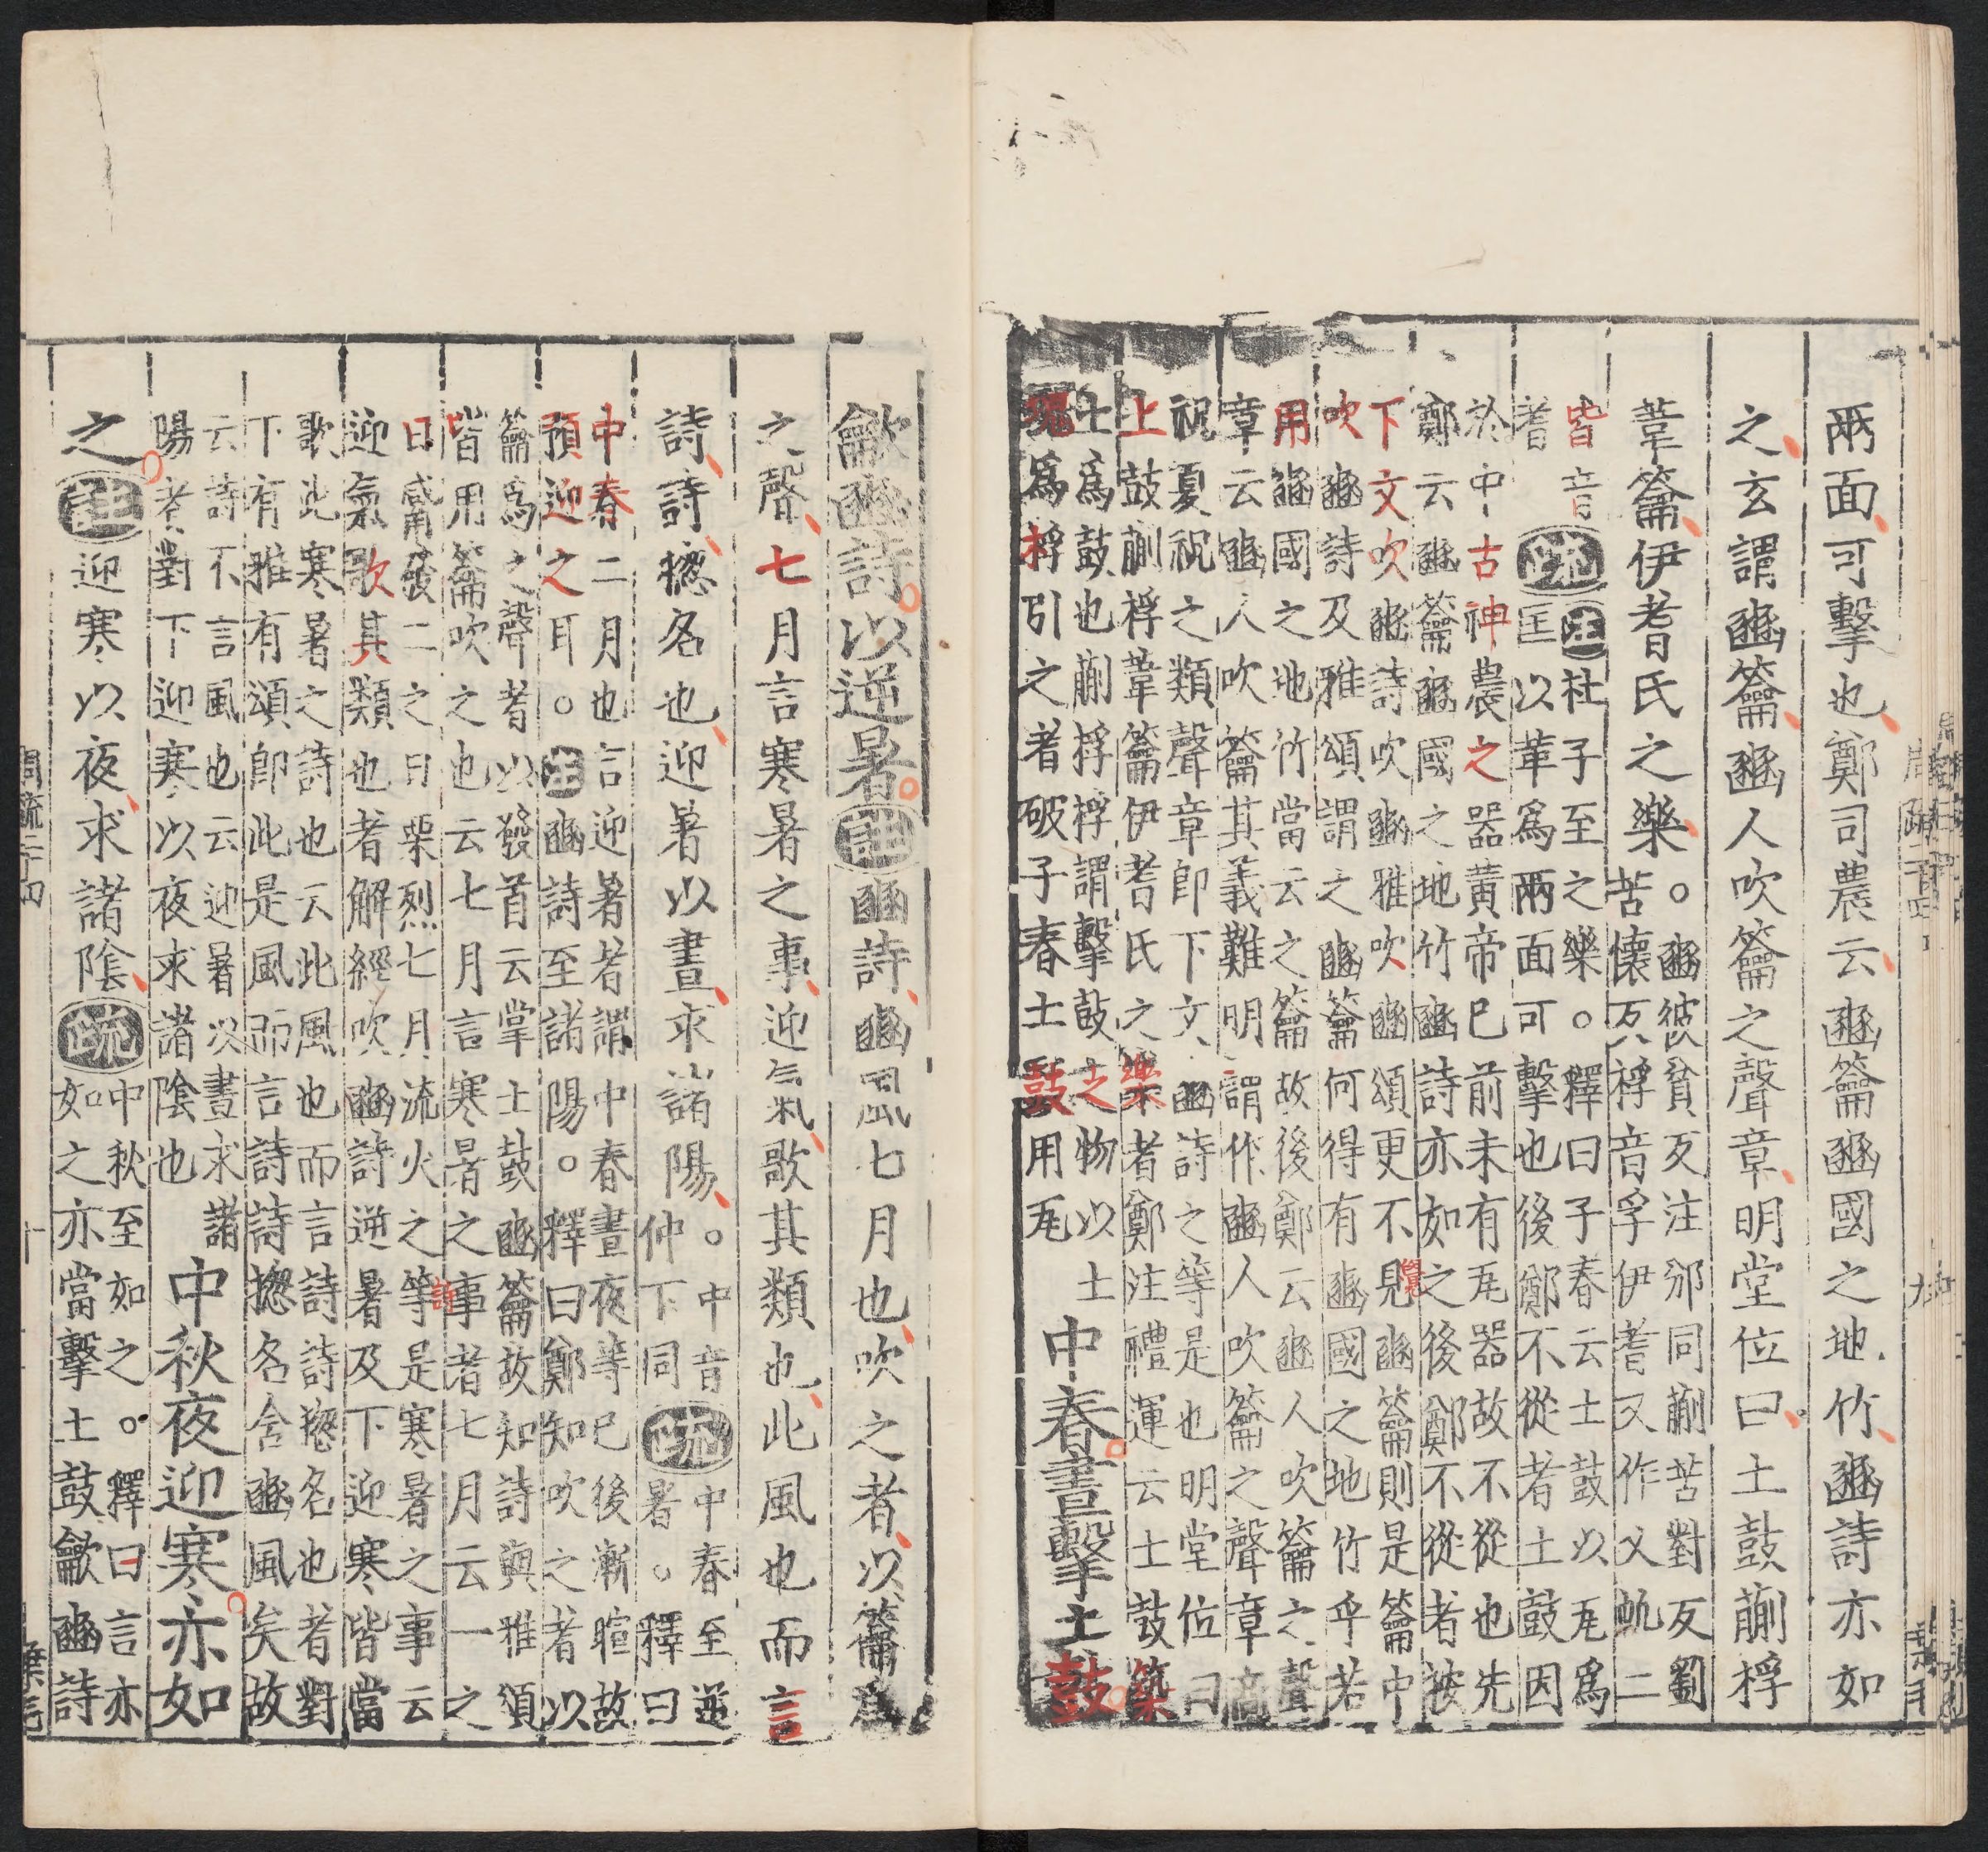 兩面可擊也鄭司農云豳籥豳國之地竹豳詩亦如
之玄謂豳籥豳人吹籥之聲章明堂位曰土鼓蒯桴
葦籥伊耆氏之樂。豳彼貧反注邠同蒯苦對反劉
苦懷反桴音孚伊耆又作又虮二
皆音疏注杜子至之樂。釋曰子春云土鼓以瓦爲
者匡以革爲兩面可擊也後鄭不從者土鼓因
於中古神農之器黃帝已前未有瓦器故不從也先
鄭云豳籥豳國之地竹豳詩亦如之後鄭不從者按
下文吹豳詩吹豳雅吹豳頌更不見豳籥則是籥中
吹豳詩及雅頌謂之豳籥何得有豳國之地竹乎若
用豳國之地竹當云之籥故後鄭云豳人吹籥之聲
章云豳人吹籥其義難明謂作豳人吹籥之聲章商
祝夏祝之類聲章即下文豳詩之等是也明堂位曰
土鼓蒯桴葦籥伊耆氏之樂者鄭注禮運云土鼓築
土爲鼓也蒯桴桴謂擊鼓之物以土
塊爲桴引之者破子春土鼓用瓦
中春晝擊土鼓
龡豳詩以逆暑注豳詩豳風七月也吹之者以籥爲
之聲七月言寒暑之事迎氣歌其類也此風也而言
詩詩揔名也迎暑以晝求諸陽。中音
仲下同疏中春至逆
暑。釋曰
中春二月也言迎暑者謂中春晝夜等已後漸暄故
預迎之耳。注豳詩至諸陽。釋曰鄭知吹之者以
籥爲之聲者以發首云掌土鼓豳籥故知詩與雅頌
皆用籥吹之也云七月言寒暑之事者七月云一之
日觱發二之日栗烈七月流火之等是寒暑之事云
迎氣歌其類也者解經吹豳詩逆暑及下迎寒皆當
歌此寒暑之詩也云此風也而言詩詩揔名也者對
下有雅有頌即此是風而言詩詩揔名含豳風矣故
云詩不言風也云迎暑以晝求諸
陽者對下迎寒以夜求諸陰也
中秋夜迎寒亦如
之注迎寒以夜求諸陰疏中秋至如之。釋曰言亦
如之亦當擊土鼓龡豳詩